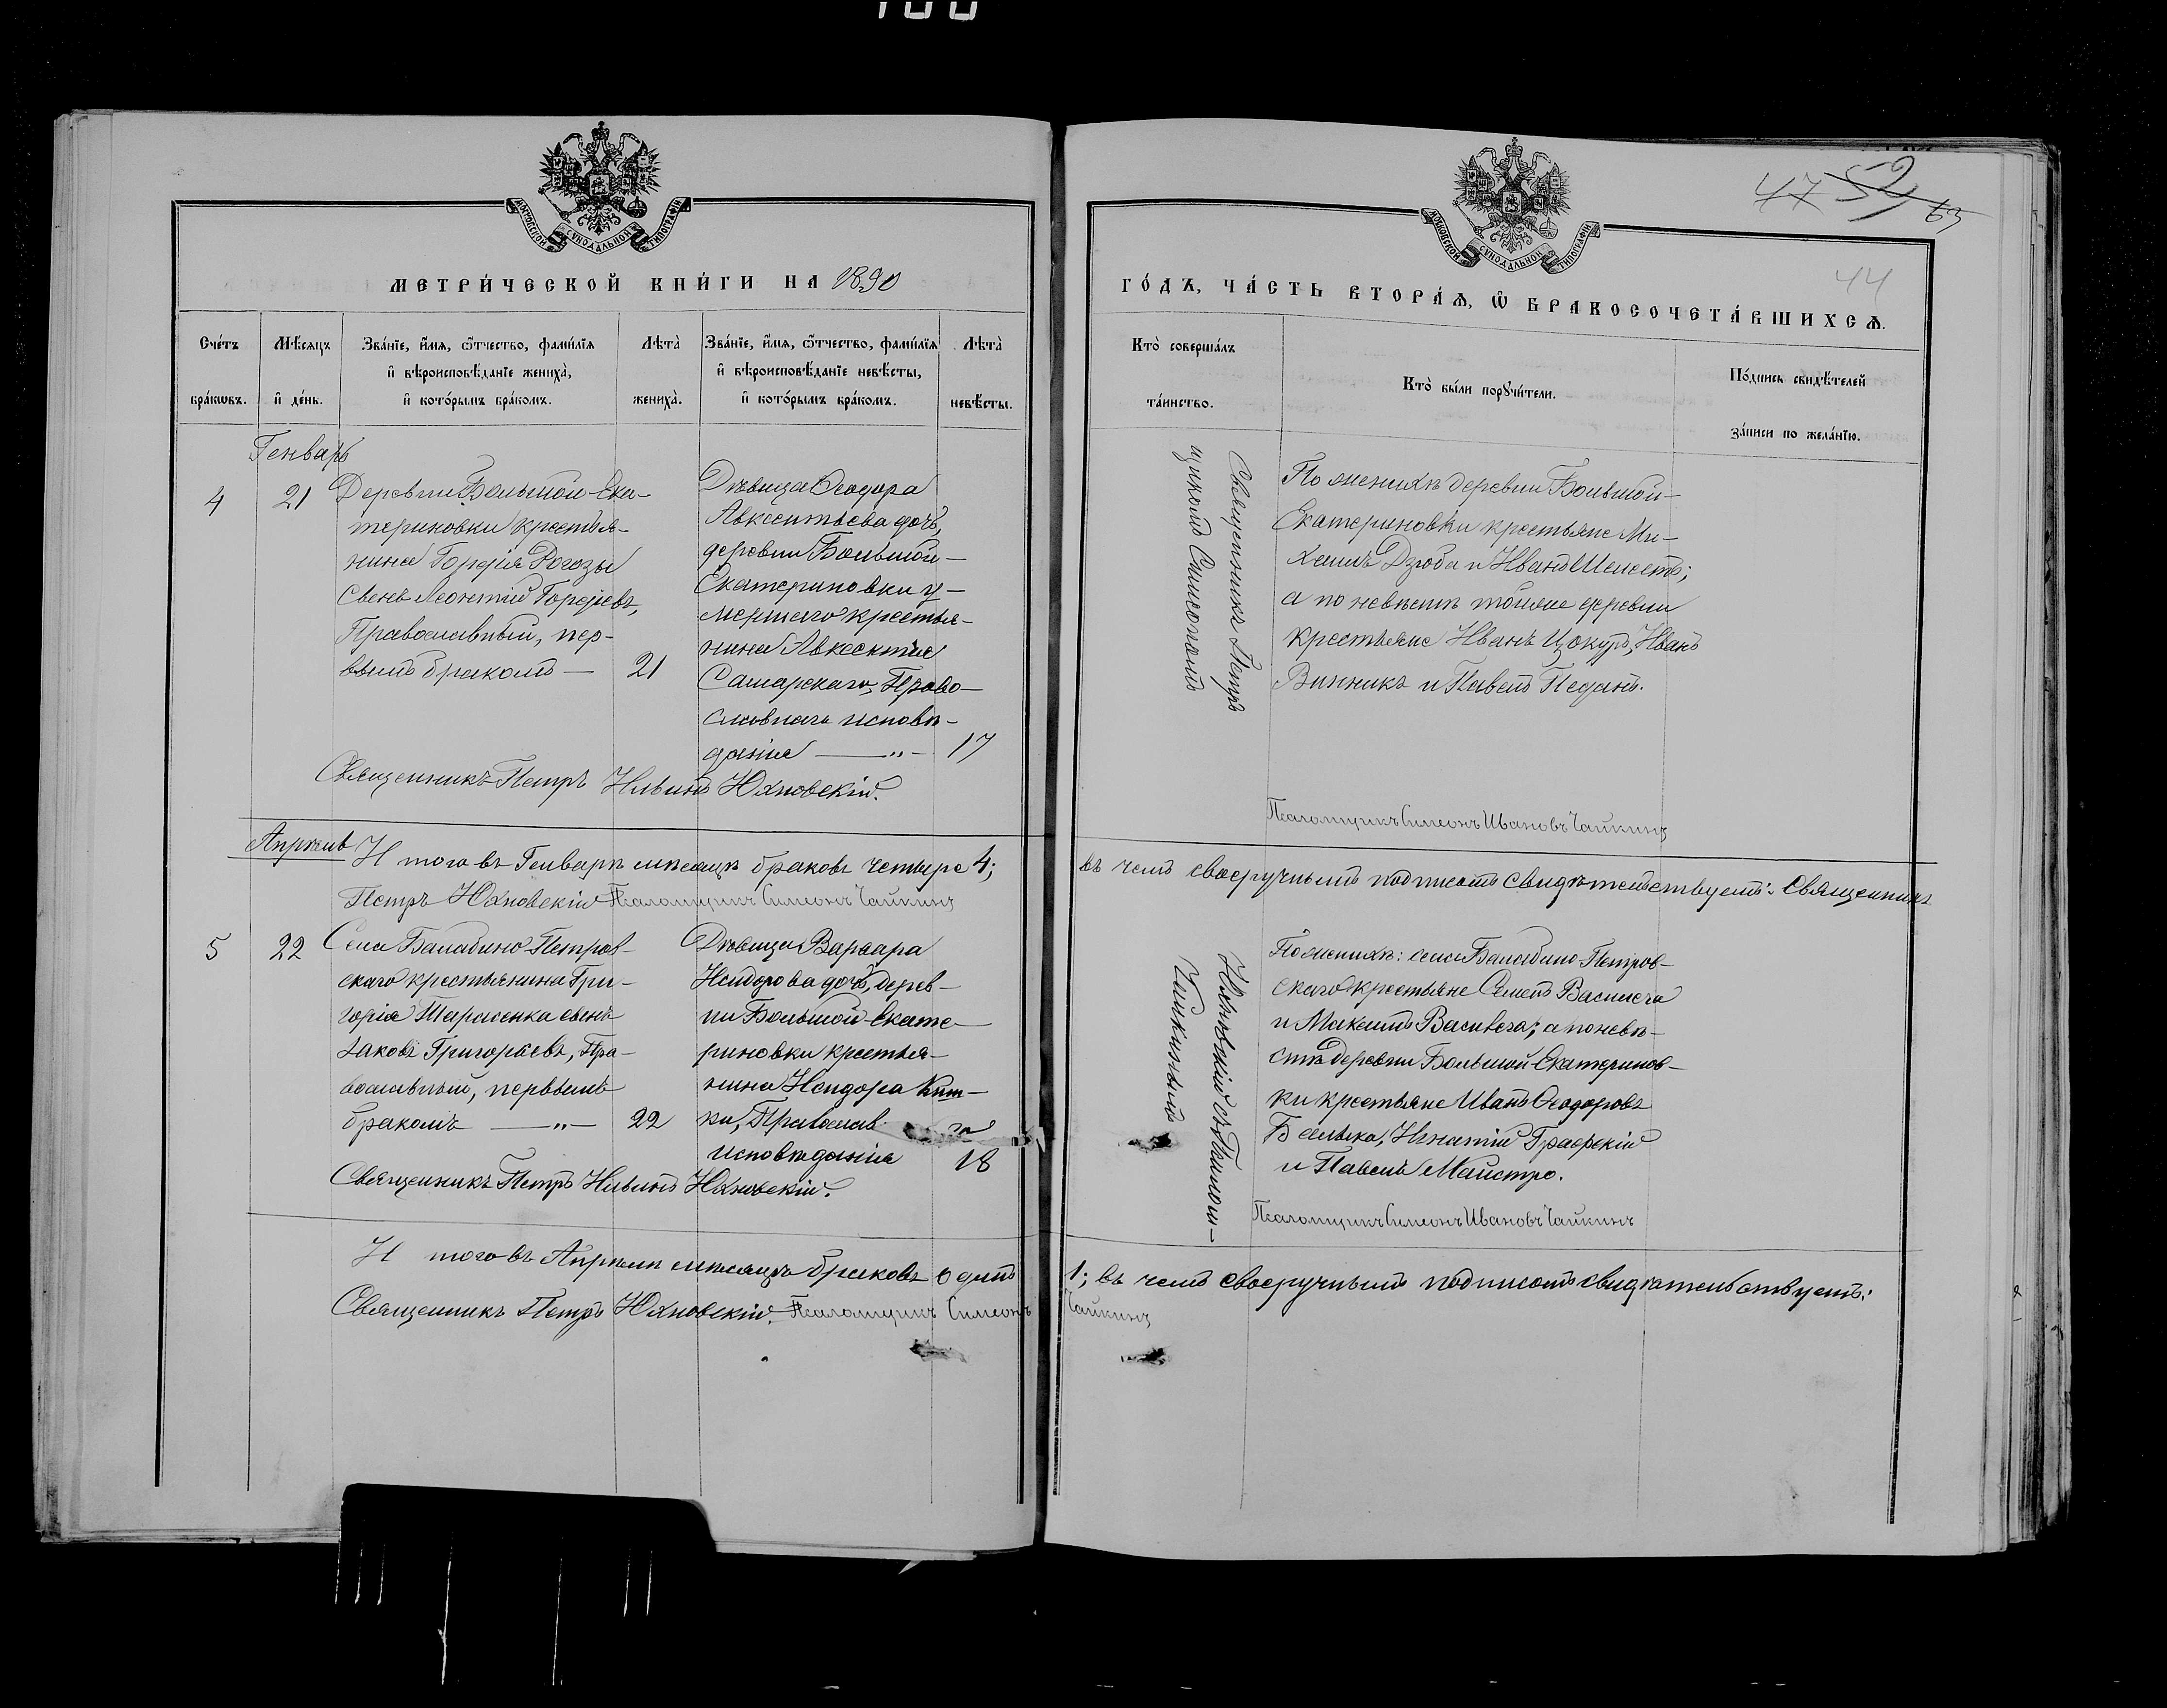 100
МОСКОВСКОЙ СѴНОДАЛЬНОЙ ТИПОГРАФІИ
МЕТРИ́ЧЕСКОЙ КНИ́ГИ НА 1890
Сче́тъ бра́кωвъ.
Мѣ́сяцъ и҆ де́нь.
Зва́нїе, и҆́мя, ѻ҆́тчество, фами́лїя
и҆ вѣроисповѣ́данїе жениха̀,
и҆ кото́рымъ бра́комъ.
Лѣта̀ жениха̀.
Зва́нїе, и҆́мя, ѻ҆́тчество, фами́лїя
и҆ вѣроисповѣ́данїе невѣ́сты,
и҆ кото́рымъ бра́комъ.
Лѣта̀ невѣ́сты.
Генварь
4
21
Деревни Большой-Ека-
териновки крестья-
нина Гордія Рогозы
сынъ Леонтій Гордіевъ,
Православный, пер-
вымъ бракомъ —
21
Дѣвица Ѳеодора
Авксентіева дочь,
деревни Большой-
Екатериновки у-
мершаго крестья-
нина Авксентія
Самарскаго, Право-
славнаго исповѣ-
данія — „ —
17
Священникъ Петръ Ильинъ Юхновскій.
Апрѣль
Итого въ Генварѣ мѣсяцѣ браковъ четыре 4;
Петръ Юхновскій Псаломщикъ Симеонъ Чайкинъ
5
22
Села Балабино-Петров-
скаго крестьянина Гри-
горія Тарасенка сынъ
Іаковъ Григорьевъ, Пра-
вославный, первымъ
бракомъ — „ —
22
Дѣвица Варвара
Исидорова дочь, дерев-
ни Большой-Екате-
риновки крестья-
нина Исидора
ки, Православ
исповѣданія
18
Священникъ Петръ Ильинъ Юхновскій.
Итого въ Апрѣлѣ мѣсяцѣ браковъ одинъ
Священникъ Петръ Юхновскій. Псаломщикъ Симеонъ
МОСКОВСКОЙ СѴНОДАЛЬНОЙ ТИПОГРАФІИ
47 52 63
44
ГО́ДЪ, ЧА́СТЬ ВТОРА́Ѧ, Ѡ҆ БРАКОСОЧЕТА́ВШИХСѦ.
Кто̀ соверша́лъ та́инство.
Кто̀ бы́ли порꙋчи́тели.
По́дпись свидѣ́телей за́писи по жела́нїю.
Священникъ Петръ
По женихѣ деревни Большой-
Екатериновки крестьяне Ми-
хаилъ Дзюба и Иванъ Шелестъ;
а по невѣстѣ тойже деревни
крестьяне Иванъ Цокуръ, Иванъ
Винникъ и Павелъ Педанъ.
Псаломщикъ Симеонъ Ивановъ Чайкинъ
въ чемъ своеручнымъ подписомъ свидѣтельствуемъ: Священникъ
Юхновскій съ Псалом-
Чайкинымъ
По женихѣ: села Балабино-Петров-
скаго крестьяне Семенъ Василега
и Максимъ Василега; а по невѣ-
стѣ деревни Большой-Екатеринов-
ки крестьяне Иванъ Ѳеодоровъ
Игнатій Граерскій
и Павелъ Майстро.
Псаломщикъ Симеонъ Ивановъ Чайкинъ
1; въ чемъ своеручнымъ подписомъ свидѣтельствуемъ:
Чайкинъ